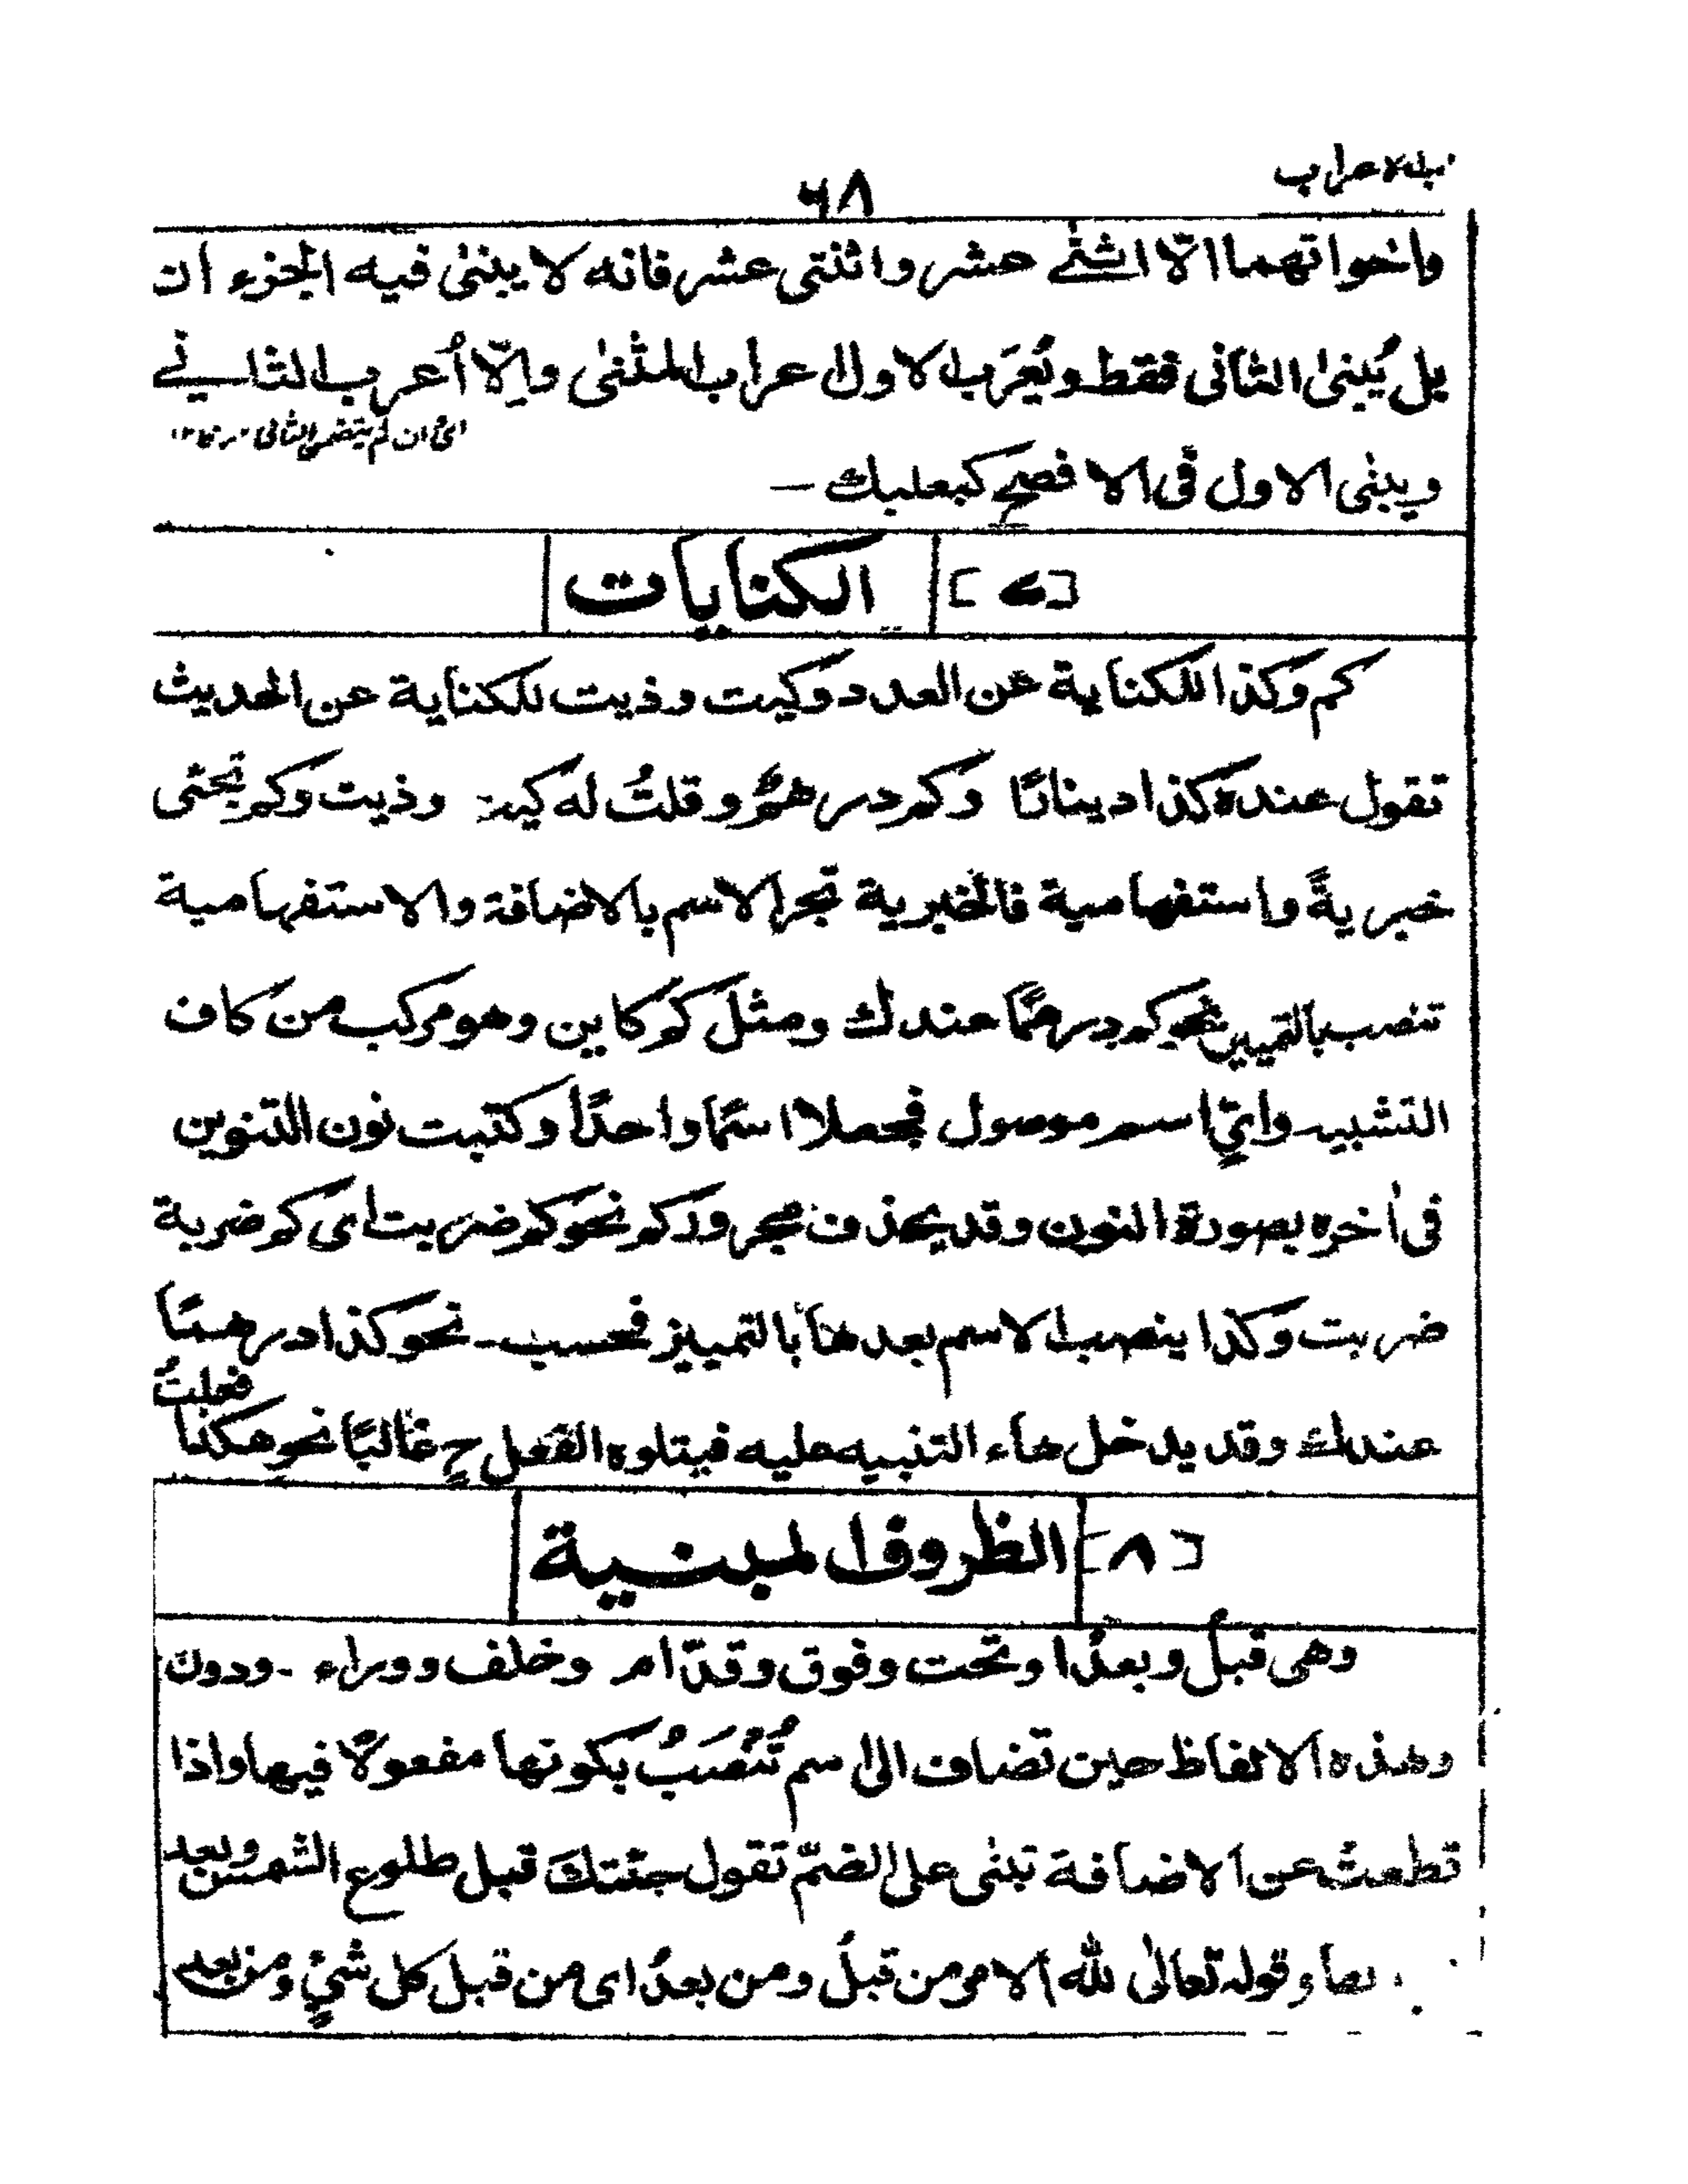 ٦٨
واخواتهما الّا اثنَى عشر واثنتى عشر فانه لا يبنىٰ فيه الجزء ان
بل يُبنىٰ الثانى فقط ويُعرَب الاول اعراب المثنىٰ واِلّا اُعرب الثانى
اى ان لم يتضمن الثانى حرفا
ويبنٰى الاول فى الافصح كبعلبك —
[٧] الكنايات
كم وكذا للكناية عن العدد وكيت وذيت للكناية عن الحديث
تقول عنده كذا دينارًا وكم درهمٍ وقلتُ له كيت وذيت وكم تجئى
خبريةً واستفهامية فالخبرية تجر الاسم بالاضافة والاستفهامية
تنصب بالتمييز نحو كم درهمًا عندك ومثل كم كاين وهو مركب من كاف
التشبيه واىٍّ اسم موصول فجعلا اسمًا واحدًا وكتبت نون التنوين
فى اٰخره بصورة النون وقد يحذف مجرور كم نحو كم ضربت اى كم ضربة
ضربت وكذا ينصب الاسم بعدها بالتمييز فحسب - نحو كذا درهمًا
عندك وقد يدخل هاء التنبيه عليه فيتلوه الفعل ح غالبًا نحو هكذا فعلتُ
[٨] الظروف المبنية
وهى قبلُ وبعدُ وتحت وفوق وقدّام وخلف ووراء - ودون
وهذه الالفاظ حين تضاف الى اسم تُنْصَبُ بكونها مفعولًا فيها واذا
قطعت عن الاضافة تبنٰى على الضمّ تقول جئتكَ قبل طلوع الشمس وبعد
وقوله تعالىٰ لله الامر من قبلُ ومن بعدُ اى من قبل كل شئٍ ومن بعد